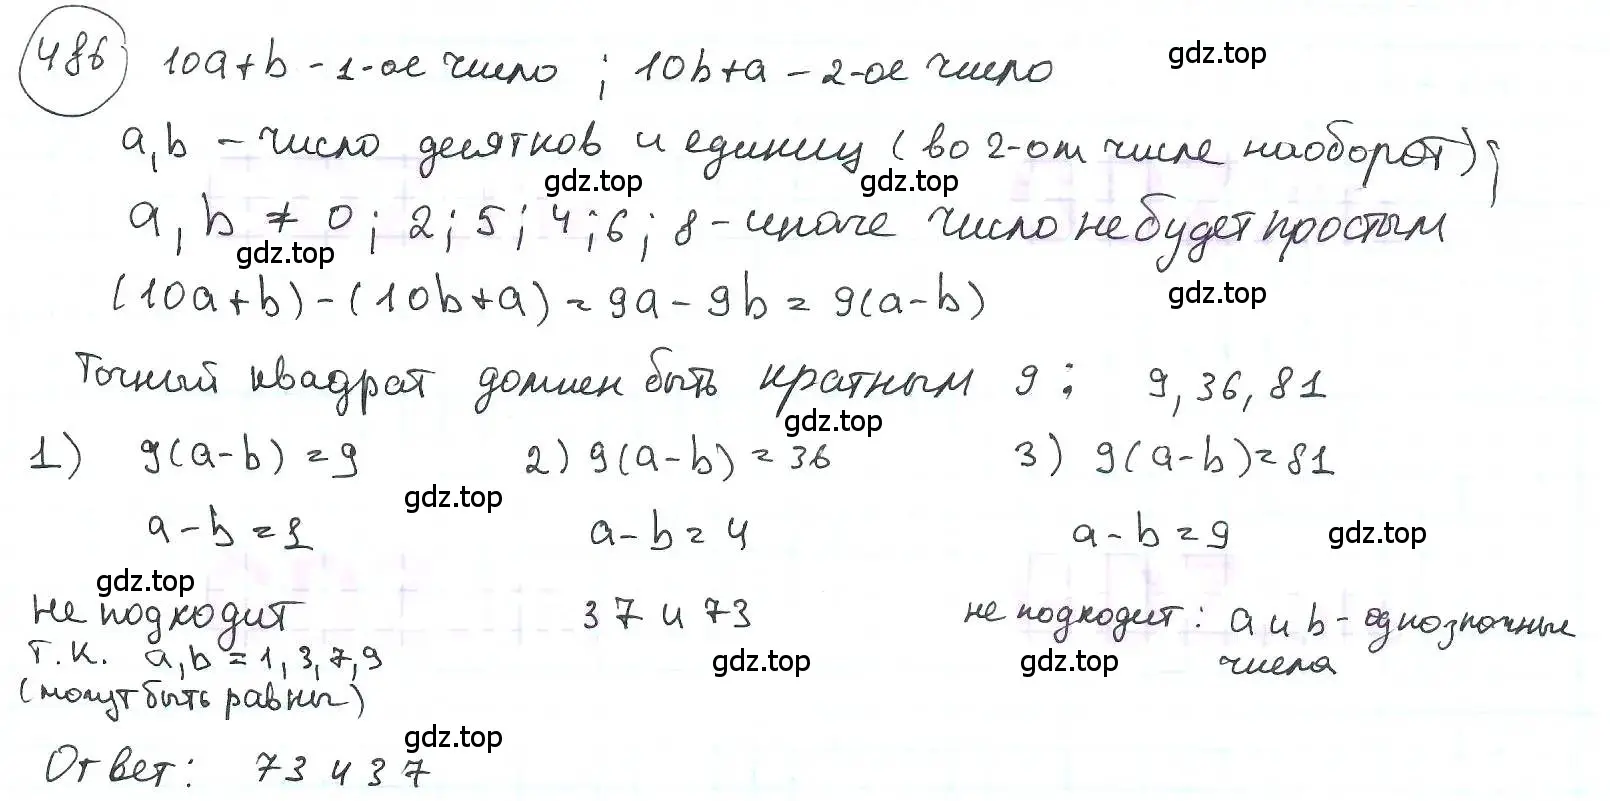 486 10a+b - 1-ое число ; 10b+a - 2-ое число gdz.top
a,b - число десятков и единиц (во 2-ом числе наоборот);
gdz.top gdz.top
a, b ≠ 0; 2; 5; 4; 6; 8 - иначе число не будет простым
gdz.top
(10a+b)-(10b+a) = 9a-9b = 9(a-b) gdz.top
Точный квадрат должен быть кратным 9: 9, 36, 81
gdz.top
1) 9(a-b) = 9 2) 9(a-b) = 36 3) 9(a-b) = 81
gdz.top
a-b = 1 a-b = 4 a-b = 9 gdz.top
gdz.top
не подходит 37 и 73 не подходит: a и b - однозначные
т.к. a,b = 1, 3, 7, 9 gdz.top gdz.top числа
(могут быть равны)
gdz.top
Ответ: 73 и 37